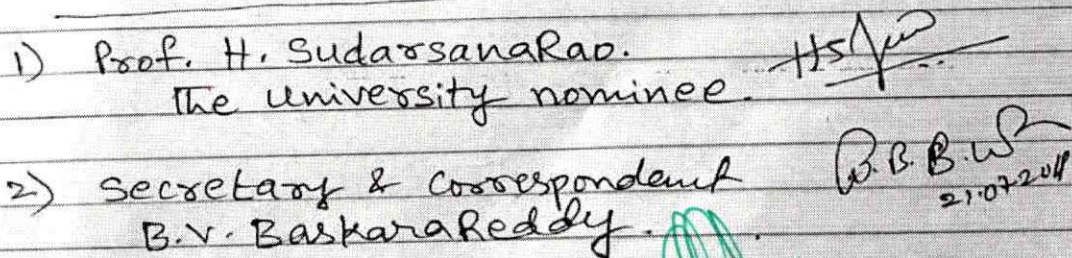 1) Prof. H. SudarsanaRao.
The University nominee.
2) Secretary & Correspondent
B.V. BaskaraReddy.